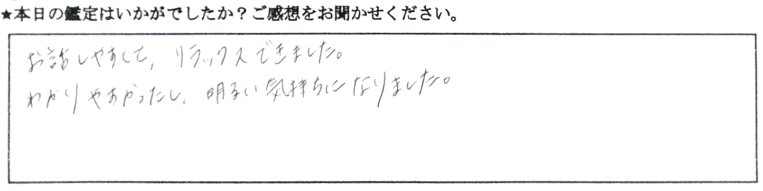 ★本日の鑑定はいかがでしたか？ご感想をお聞かせください。
お話しやすくて、リラックスできました。
わかりやすかったし、明るい気持ちになりました。